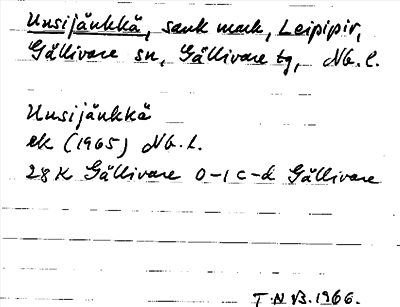 Uusijänkkä, sank mark, Leipipir,
Gällivare sn, Gällivare tg, Nb. l.
Uusijänkkä
ek (1965) Nb. l.
28 K Gällivare 0-1 c-d Gällivare
T.N.B. 1966.